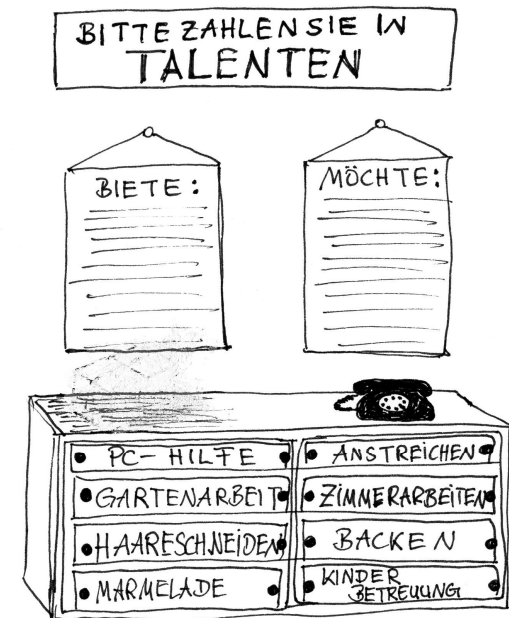 BITTE ZAHLEN SIE IN
TALENTEN
BIETE:
MÖCHTE:
PC-HILFE
GARTENARBEIT
HAARESCHNEIDEN
MARMELADE
ANSTREICHEN
ZIMMERARBEITEN
BACKEN
KINDER
BETREUUNG